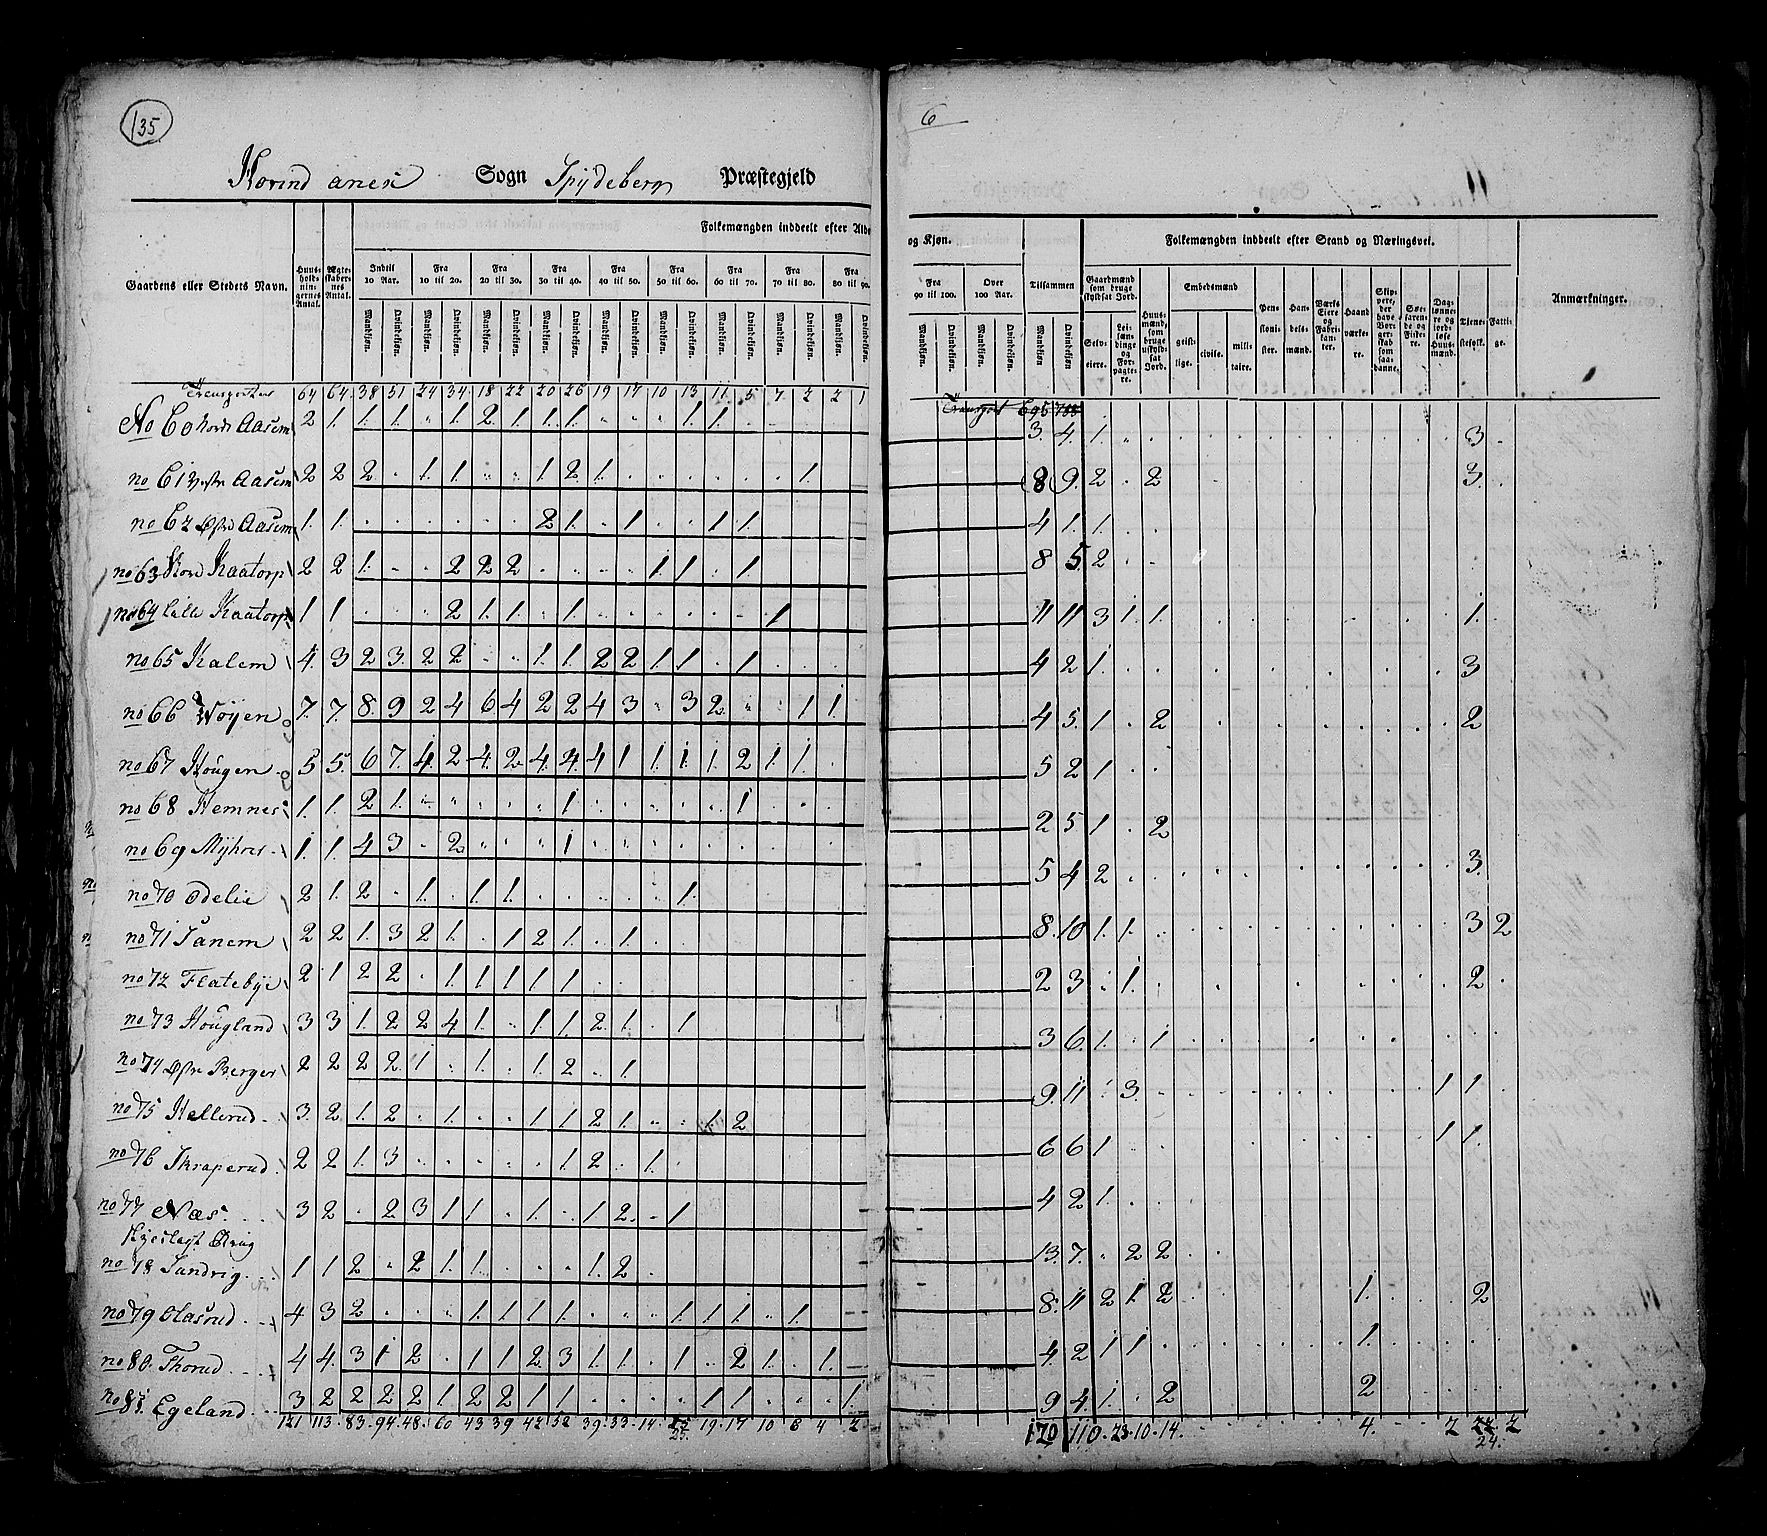 135
6
Hovind anex Sogn Spydeberg Præstegjeld
Folkemængden inddeelt efter Alde
og Kjøn.
Folkemængden inddeelt efter Stand og Næringsvei.
Gaardens eller Stedets Navn.
Huusholdningernes Antal.
Ægteskabernes Antal.
Indtil 10 Aar.
Fra 10 til 20.
Fra 20 til 30.
Fra 30 til 40.
Fra 40 til 50.
Fra 50 til 60.
Fra 60 til 70.
Fra 70 til 80.
Fra 80 til 90.
Fra 90 til 100.
Over 100 Aar.
Tilsammen
Mandkjøn. Qvindekjøn.
Gaardmænd som bruge skyldsat Jord.
Selveiere.
Leilændinge og Forpagtere.
Huusmænd, som bruge uskyldsat Jord.
Embedsmænd
geistlige. civile. militaire.
Pensionister.
Handelsmænd.
Værks Eiere og Fabrikanter.
Haandværkere.
Skippere, der have Borgerskab som saadanne.
Søefarende og Fiskere.
Daglønnere og jordløse Huusmænd.
Tjenestefolk.
Fattige.
Anmærkninger.
Transporteres 64 64 38 51 24 34 18 22 20 26 19 17 10 13 11 5 7 2 2 1
Transport 695 788
No 60 Nordr Aasem 2 1. 1. 1. 1. 2. 1. 1. 1. 1. 1.
3. 4. 1. 3.
no 61 Vestr Aasem 2 2 2 1. 1. 1. 2. 1. 1.
8 9. 2 2 3.
no 62 Østr Aasem 1. 1. 2 1. 1. 1. 1.
4 1. 1.
no 63 Stor Kaatorp 2 2 1. 2 2 2 1. 1. 1.
8 5. 2
no 64 Lille Kaatorp 1 1 2 1. 1. 1. 1
11 11 3 1. 1. 1.
no 65 Kalem 4. 3 2 3. 2 2 1. 1. 2 2 1. 1. 1.
4 2 1. 3
no 66 Woÿen 7. 7. 8. 9 2 4 6 4 2 2 4 3 3 2. 1 1.
4 5. 1 2 2
no 67 Hougen 5 5. 6 7. 4. 2 4. 2 4. 4. 4 1 1. 1. 1. 2 1. 1.
5 2 1
no 68 Hemnes 1. 1. 2 1. 1. 1.
2 5 1 2
no 69 Mÿhrer 1. 1. 4 3 2. 1
5 4 2 3.
no 70 Odelie 2 1. 2 1. 1 1. 1.
8. 10 1. 1. 3 2
no 71 Sanem 2 2 1. 3 2 1. 1 2 1. 1.
2 3 1. 2
no 72 Flatebÿe 2 1 2 2 1. 1 1 1 1.
3 6. 1. 1
no 73 Hougland 3 3 1. 2 2 4 1. 1 1 2 1. 1
9. 11 3. 1 1.
no 74 Østr Berger 2 2 2 2. 1 1. 1. 2 1.
6 6 1 1 1.
no 75 Hellerud 3. 2 1. 2 1. 1 1 2 1. 1. 2
4 2 1.
no 76 Skraperud 2 2 1. 3 1. 2 1.
13. 7. 2 2
no 77 Næs 3 2 2 3 1 1 1. 1 2. 1
8. 11 2 1. 2 1. 2
no 78 Sandvig 1 1 2 2 1. 1. 1. 2
4. 2 1 1 1.
no 79 Olasrud 4 3 2 1. 1 1. 1. 1. 1. 1. 1.
9 4. 1. 2 2
no 80. Thorud 4 4. 3 1 2 1 1 2 3 1 1 1 2 1. 1.
no 81. Egeland 3 2 2 2 2 1 2 2 1 1 1 1 1.
121 113. 83. 94. 48. 60 43 39 42 52 39. 33. 14. 25. 19. 17 10 8 4 2
170 110. 23. 10. 14. 4. 2 24. 2